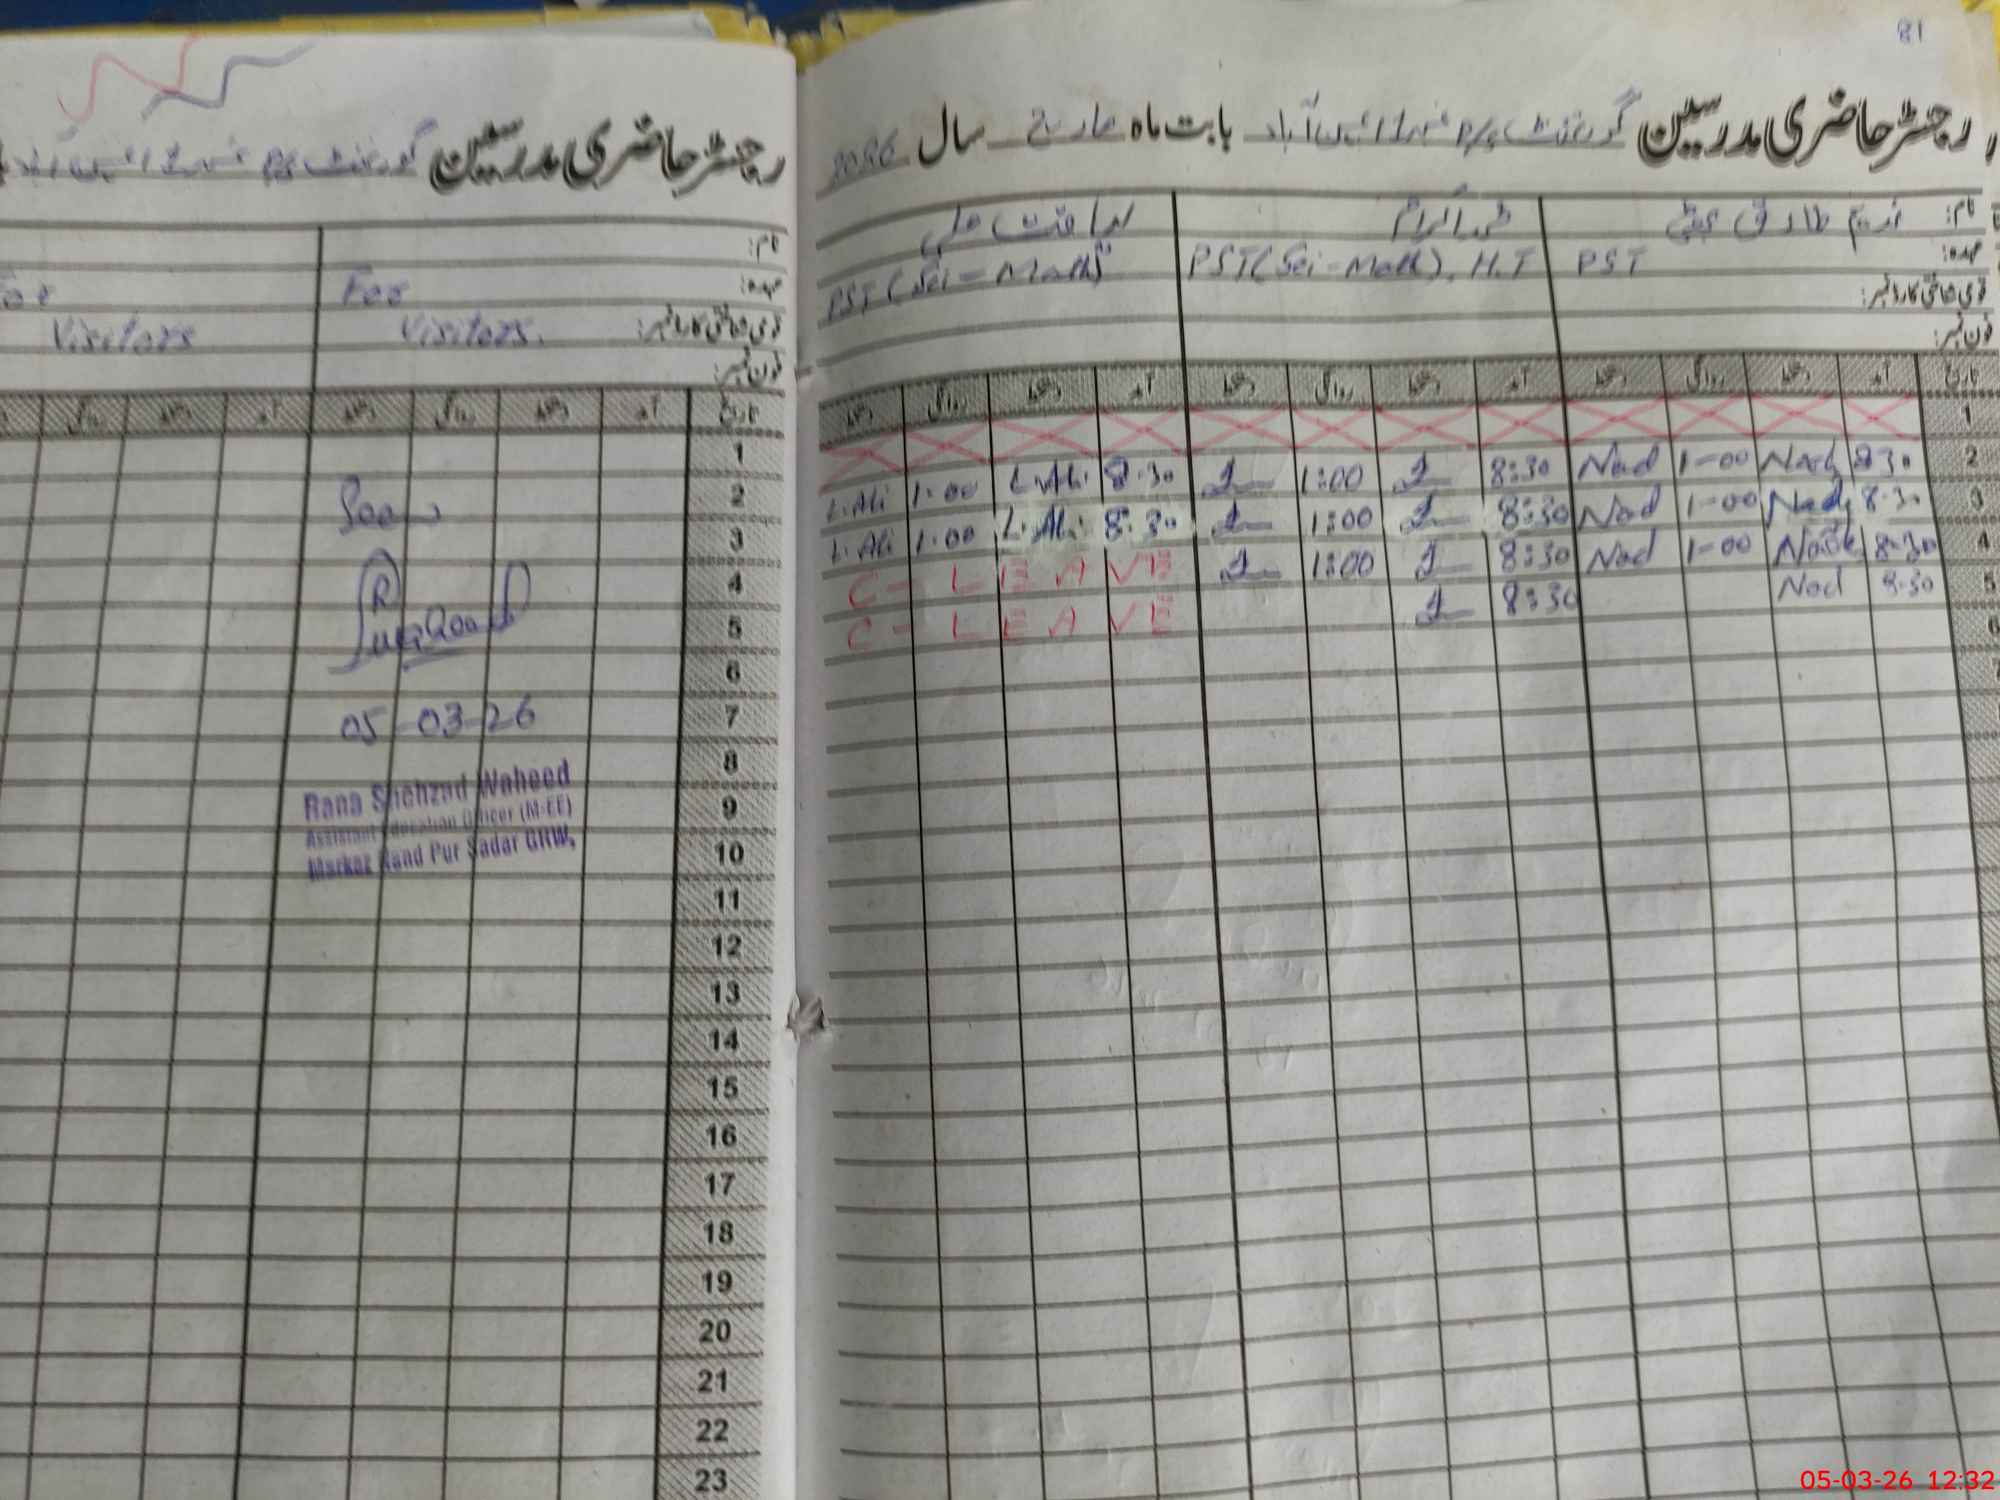 81
رجسٹر حاضری مدرسین گورنمنٹ بابت ماہ مارچ سال 2026
نام: ندیم طارق بھٹی محمد اکرام لیاقت علی
عہدہ: PST PST(Sci-Math), H.T PST (Sci-Math)
قومی شناختی کارڈ نمبر:
فون نمبر:
تاریخ آمد دستخط روانگی دستخط آمد دستخط روانگی دستخط آمد دستخط روانگی دستخط
1
2 8.30 Nad 1-00 Nad 8:30 1:00 8.30 L.Ali 1.00 L.Ali
3 8.30 Nad 1-00 Nad 8:30 1:00 8.30 L.Ali 1.00 L.Ali
4 8.30 Nad 1-00 Nad 8:30 1:00 C - LEAVE
5 8.30 Nad 8:30 C - LEAVE
6
رجسٹر حاضری مدرسین گورنمنٹ
نام:
عہدہ: For For
قومی شناختی کارڈ نمبر: Visitors. Visitors
فون نمبر:
تاریخ آمد دستخط روانگی دستخط آمد دستخط روانگی
1
2
Seen
3
4
5
6
7
05-03-26
8
9
Rana Shehzad Waheed
Assistant Education Officer (M-EE)
Markaz Nand Pur Sadar GRW.
10
11
12
13
14
15
16
17
18
19
20
21
22
23
05-03-26 12:32